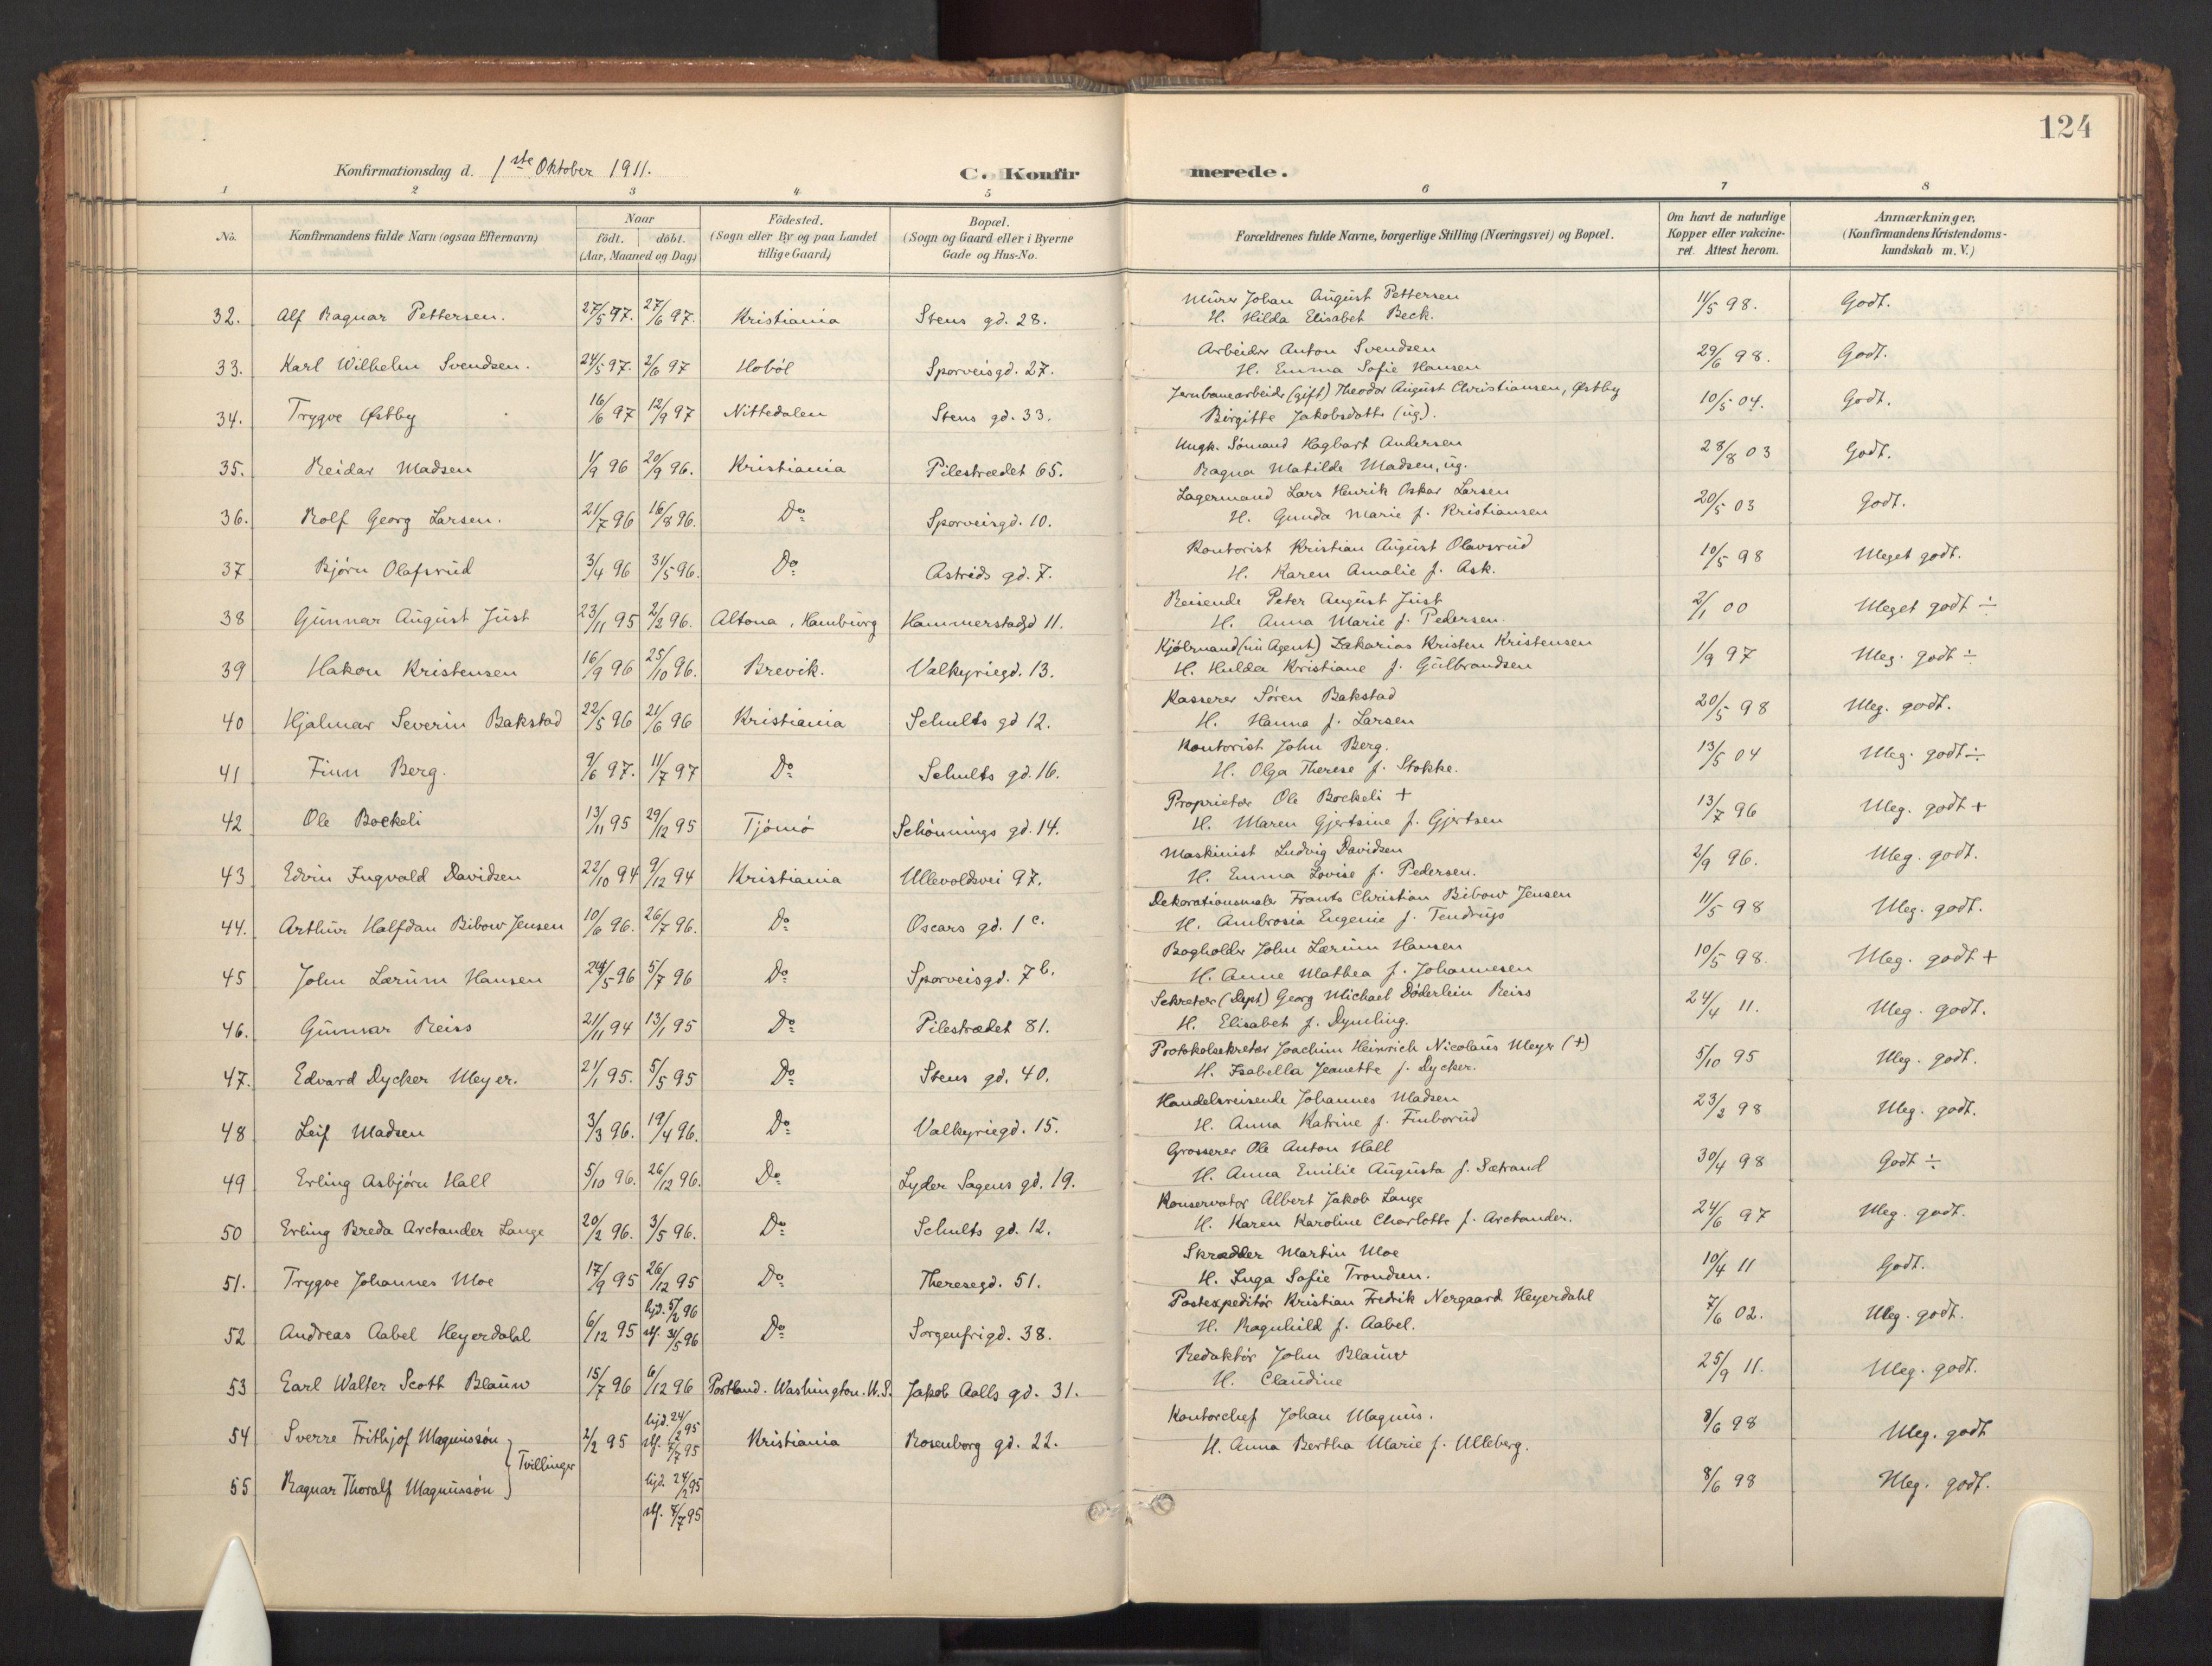 124
Konfirmationsdag d. 1ste Oktober 1911.
C. Konfirmerede.
1 2 3 4 5 6 7 8
No. | Konfirmandens fulde Navn (ogsaa Efternavn) | Naar födt. döbt. (Aar, Maaned og Dag) | Födested. (Sogn eller By og paa Landet tillige Gaard) | Bopæl. (Sogn og Gaard eller i Byerne Gade og Hus-No. | Forældrenes fulde Navne, borgerlige Stilling (Næringsvei) og Bopæl. | Om havt de naturlige Kopper eller vakcineret. Attest herom. | Anmærkninger. (Konfirmandens Kristendomskundskab m.V.)
32. Alf Ragnar Pettersen. 27/5 97. 27/6 97. Kristiania Stens gd. 28. Murer Johan August Pettersen
H. Hilda Elisabet Beck. 11/5 98. Godt.
33. Karl Wilhelm Svendsen. 24/5 97. 2/6 97 Hobøl Sporveisgd. 27. Arbeider Anton Svendsen
H. Emma Sofie Hansen 29/6 98. Godt.
34. Trygve Østby 16/6 97 12/9 97 Nittedalen Stens gd. 33. Jernbanearbeider (gift) Theodor August Christiansen, Østby
Birgitte Jakobsdatter (ug). 10/5 04. Godt.
35. Reidar Madsen 1/9 96 20/9 96. Kristiania Pilestrædet 65. Ungk. Sømand Hagbart Andersen
Ragna Matilde Madsen, ug. 28/8 03 Godt.
36. Rolf Georg Larsen. 21/7 96 16/8 96. Do Sporveisgd. 10. Lagermand Lars Henrik Oskar Larsen
H. Gunda Marie f. Kristiansen 20/5 03 Godt.
37 Bjørn Olafsrud 3/4 96 31/5 96. Do Astrids gd. 7. Kontorist Kristian August Olavsrud
H. Karen Amalie f. Ask. 10/5 98 Meget godt.
38 Gunnar August Just 23/11 95 2/2 96. Altona, Hamburg Hammerstadgd 11. Reisende Peter August Just
H. Anna Marie f. Pedersen. 2/1 00 Meget godt ÷
39 Hakon Kristensen 16/9 96 25/10 96. Brevik. Valkyriegd. 13. Kjølmand (nu Agent) Zakarias Kristen Kristensen
H. Hulda Kristiane f. Gulbrandsen 1/9 97 Meg. godt ÷
40 Hjalmar Severin Bakstad 22/5 96 21/6 96 Kristiania Schults gd 12. Kasserer Søren Bakstad
H. Hanna f. Larsen 20/5 98 Meg. godt.
41 Finn Berg. 9/6 97. 11/7 97 Do Schults gd. 16. Kontorist John Berg.
H. Olga Therese f. Stokke. 13/5 04 Meg. godt ÷
42 Ole Bockeli 13/11 95 29/12 95 Tjømø Schønnings gd. 14. Proprietær Ole Bockeli +
H. Maren Gjertsine f. Gjertsen 13/7 96 Meg. godt +
43 Edvin Ingvald Davidsen 22/10 94 9/12 94 Kristiania Ullevoldsvei 97. Maskinist Ludvig Davidsen
H. Emma Lovise f. Pedersen. 2/9 96. Meg. godt.
44. Arthur Halfdan Bibow Jensen 10/6 96. 26/7 96. Do Oscars gd. 1 c. Dekorationsmaler Frants Christian Bibow Jensen
H. Ambrosia Eugenie f. Tendrup 11/5 98 Meg. godt.
45 John Lærum Hansen 24/5 96 5/7 96 Do Sporveisgd. 7 b. Bogholder John Lærum Hansen
H. Anne Mathea f. Johannesen 10/5 98. Meg. godt +
46. Gunnar Reiss 21/11 94 13/1 95 Do Pilestrædet 81. Sekretær (Dept) Georg Michael Døderlein Reiss
H. Elisabet f. Dymling. 24/4 11. Meg. godt.
47. Edvard Dycker Meyer. 21/1 95. 5/5 95 Do Stens gd. 40. Protokolsekretær Joachim Heinrich Nicolaus Meyer (+)
H. Isabella Jeanette f. Dycker. 5/10 95 Meg. godt.
48 Leif Madsen 3/3 96. 19/4 96. Do Valkyriegd. 15. Handelsreisende Johannes Madsen
H. Anna Katrine f. Finborud 23/2 98 Meg. godt.
49 Erling Asbjørn Hall 5/10 96. 26/12 96. Do Lyder Sagens gd. 19. Grosserer Ole Anton Hall
H. Anna Emilie Augusta f. Sætrand 30/4 98 Godt ÷
50 Erling Breda Arctander Lange 20/2 96. 3/5 96. Do Schults gd. 12. Konservator Albert Jakob Lange
H. Karen Karoline Charlotte f. Arctander. 24/6 97 Meg. godt.
51. Trygve Johannes Moe 17/9 95 26/12 95 Do Theresegd. 51. Skrædder Martin Moe
H. Inga Sofie Trondsen. 10/4 11 Godt.
52 Andreas Aabel Heyerdahl 6/12 95 hjd. 5/2 96 stf. 3/5 96 Do Sorgenfrigd. 38. Postexpeditør Kristian Fredrik Nergaard Heyerdahl
H. Ragnhild f. Aabel. 7/6 02. Meg. godt.
53 Earl Walter Scott Blauw 15/7 96 6/12 96 Portland. Washington. U.S. Jakob Aalls gd. 31. Redaktør John Blauw
H. Claudine 25/9 11. Meg. godt.
54 Sverre Frithjof Magnussøn } Tvillinger 2/2 95 hjd. 24/2 95 stf. 7/7 95 Kristiania Rosenborg gd. 22. Kontorchef Johan Magnus.
H. Anna Bertha Marie f. Ulleberg. 8/6 98 Meg. godt
55 Ragnar Thoralf Magnussøn hjd. 24/2 95 stf. 7/7 95 8/6 98 Meg. godt.